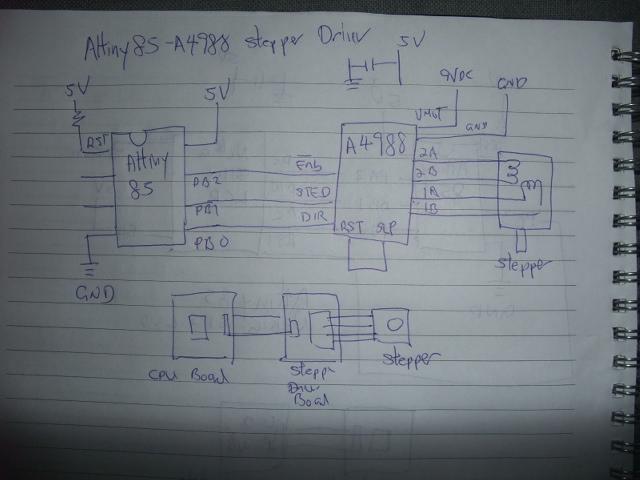 Attiny85-A4988 stepper Driver
5V
5V
5V
9VDC
GND
RST
ATtiny
85
PB2
PB1
PB0
GND
A4988
VMOT
GND
Enb
STED
DIR
RST SLP
2A
2B
1A
1B
Stepper
CPU Board
Stepp
Driver
Board
Stepper